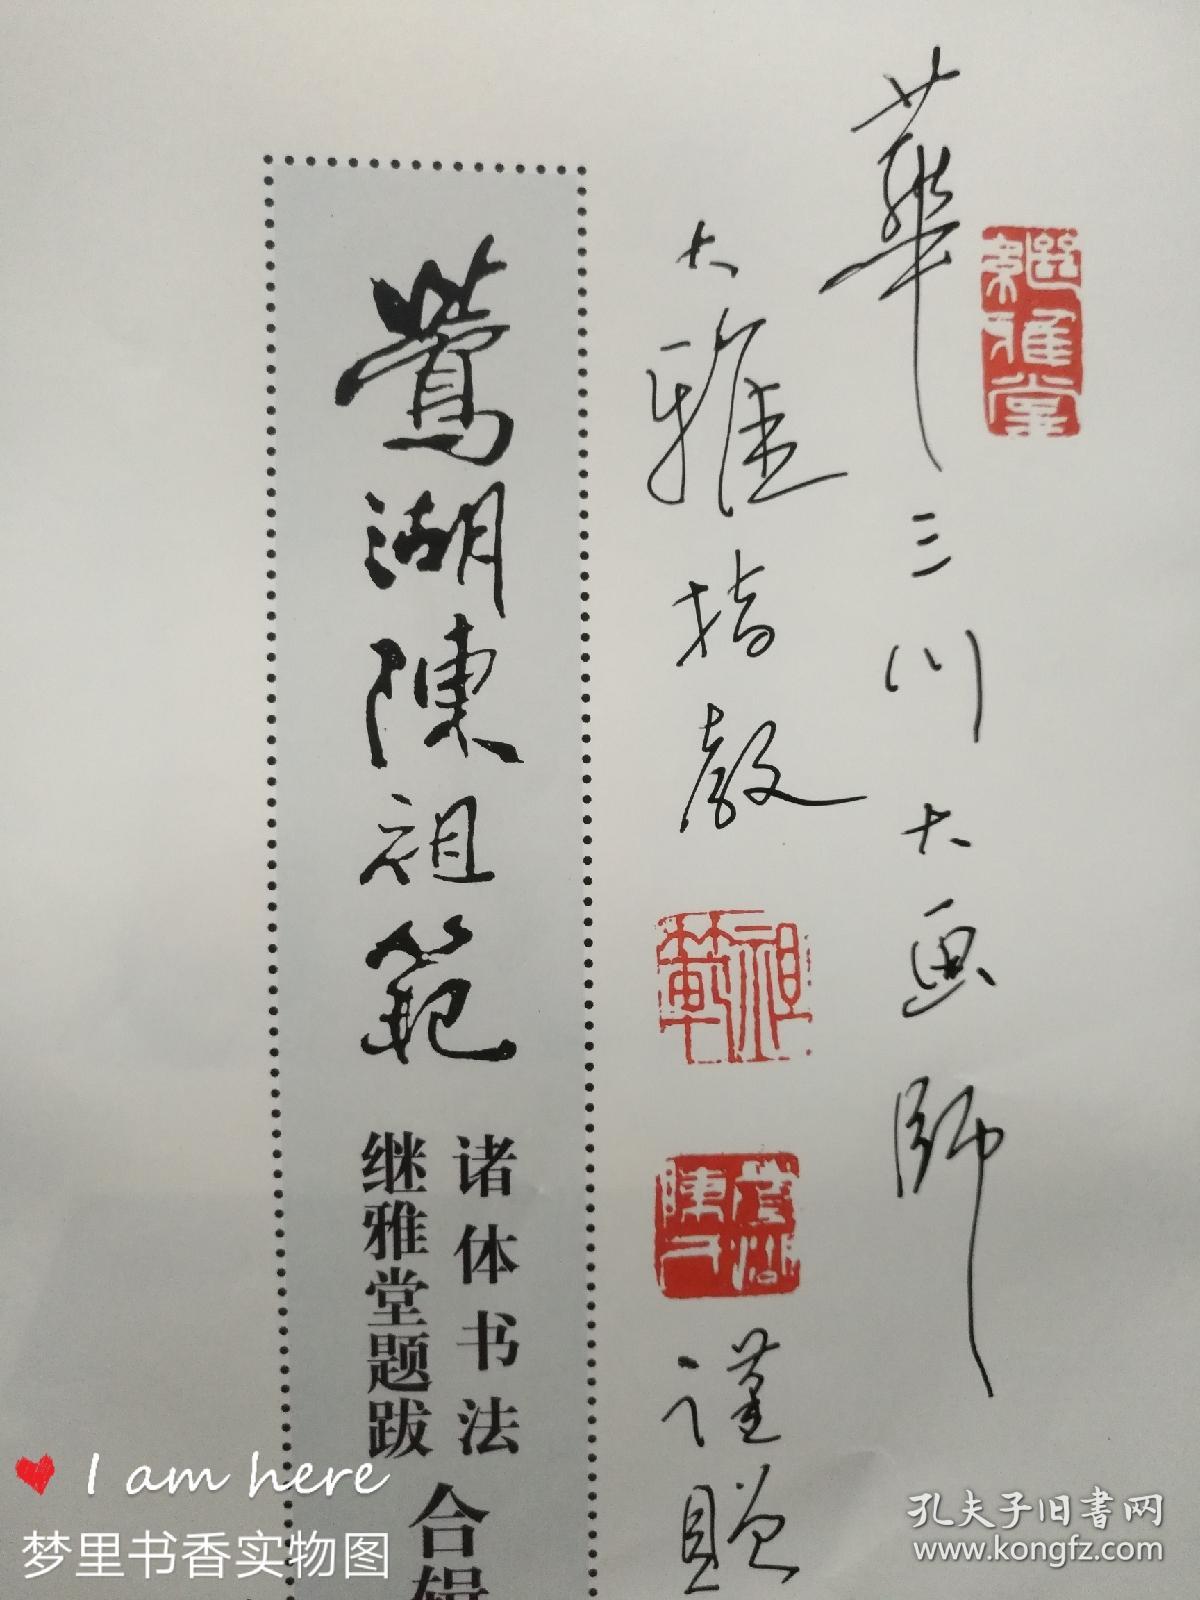 華三川大画師
大雅指教
謹贈
继雅堂
祖範
陳
鶯湖陳祖範
诸体书法
继雅堂题跋
合辑
I am here
梦里书香实物图
孔夫子旧书网
www.kongfz.com